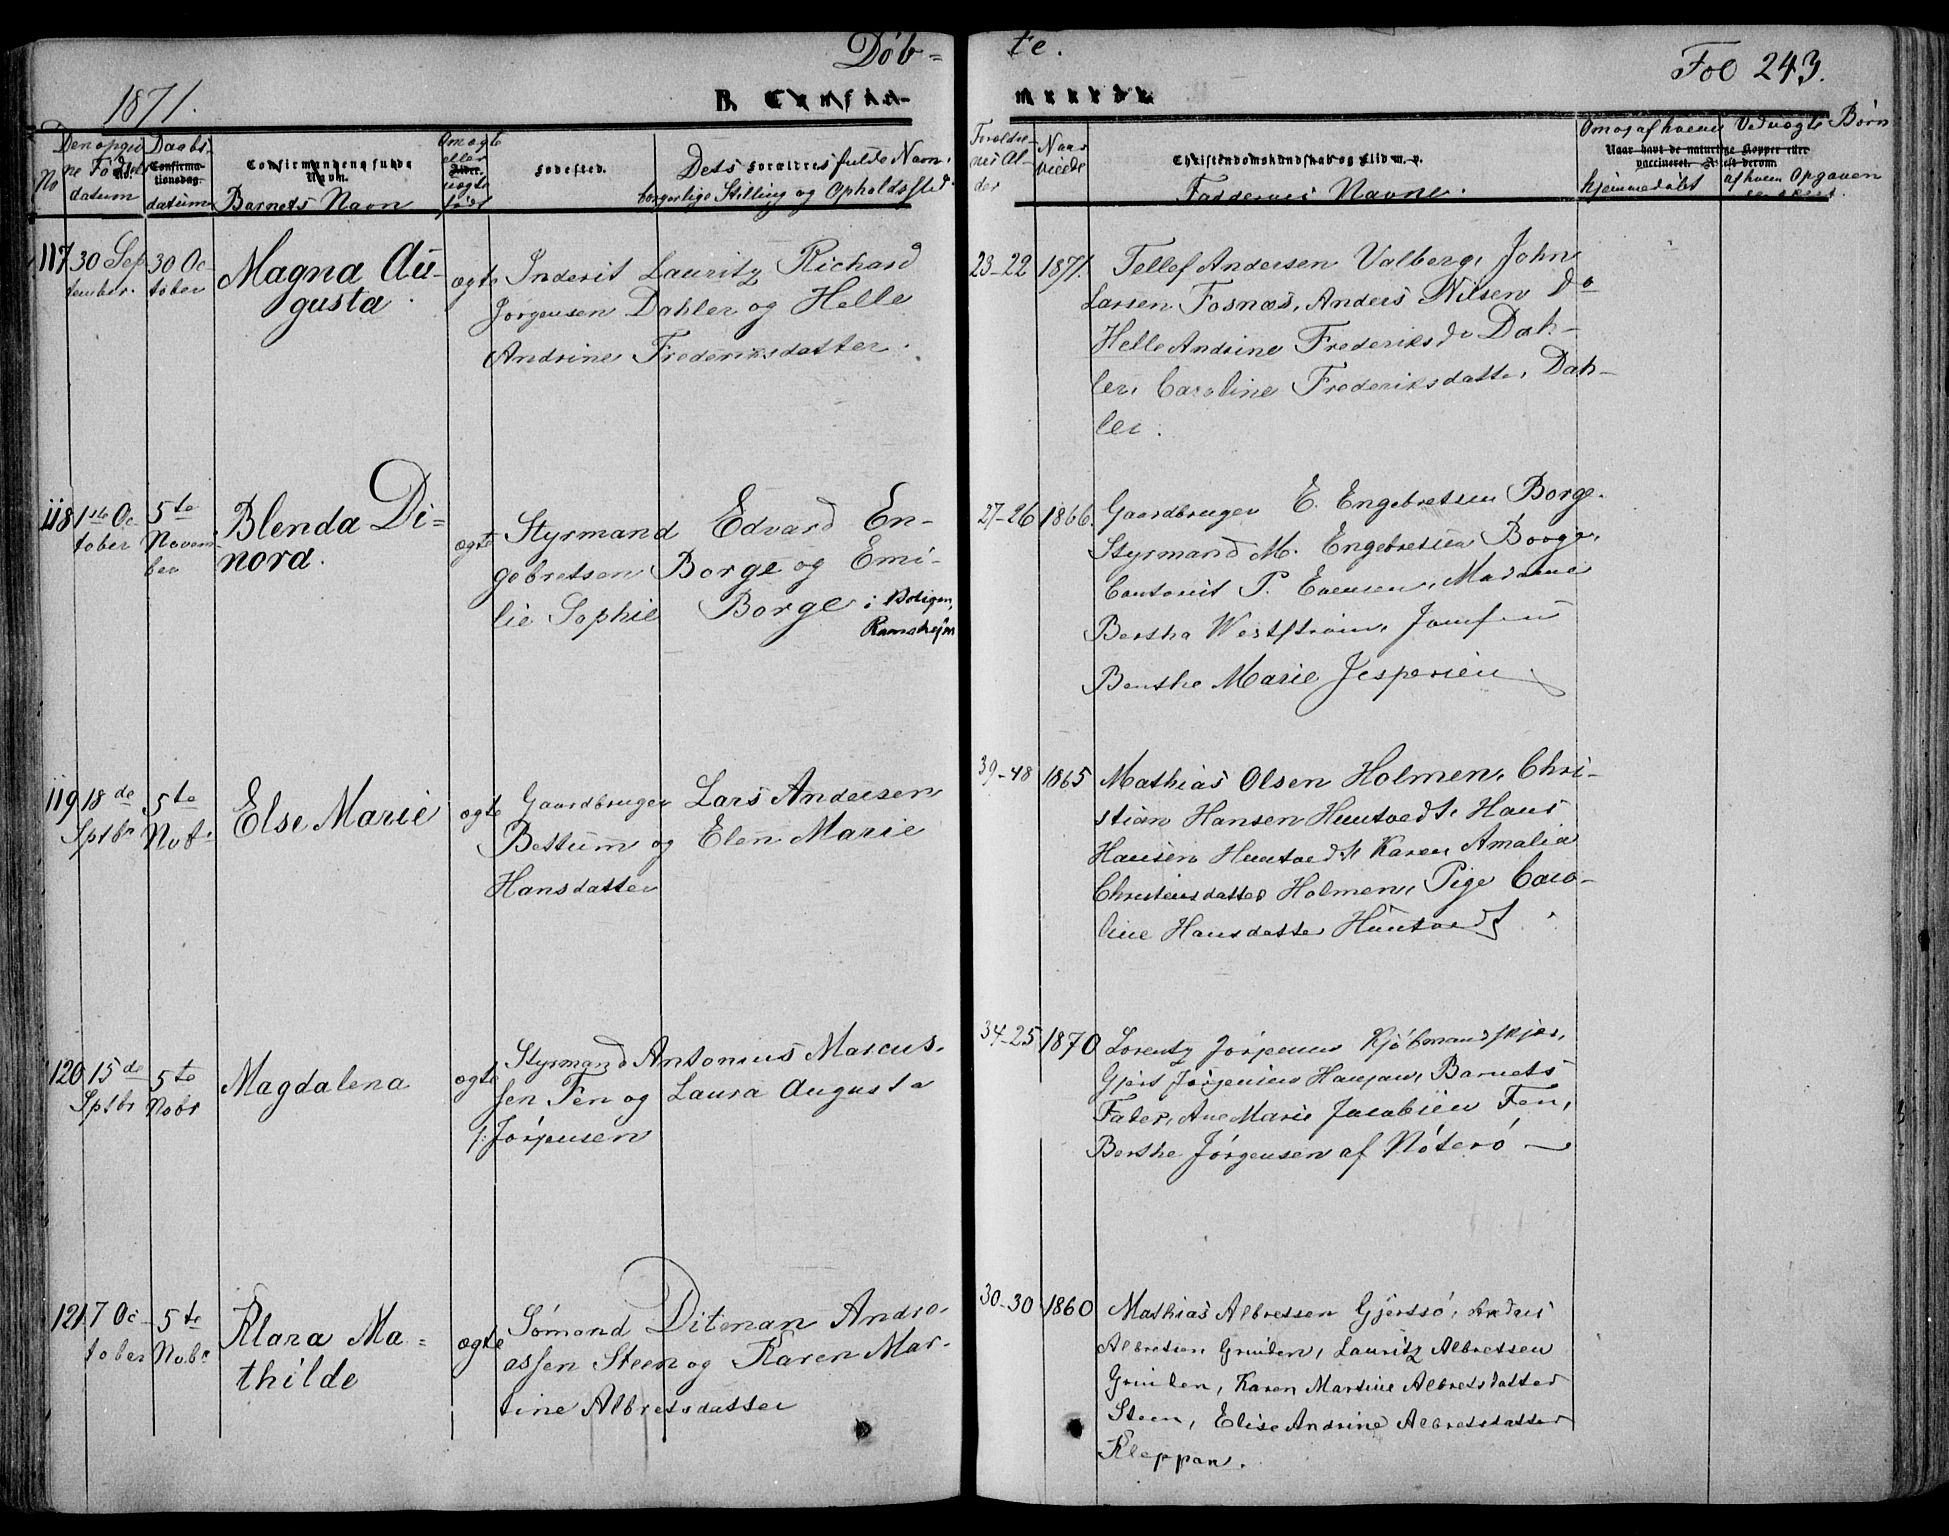 1871.
Døb-
te.
Fol 243.
B. Confir-
No
Den opgiv
ne Fødsels
datum
Daabs
Confirma-
tionsdag.
datum
Confirmandens fulde
Navn.
Barnets Navn
Om ægte
eller
uægte
født
Fødested.
Dets Forældres fulde Navn,
borgerlige Stilling og Opholdssted.
Forældre-
nes Al-
der
Naar
viede
Christendomskundskab og Flid m. v.
Faddernes Navne.
Om og af hvem
hjemmedøbt
Ved uægte Børn
Naar havt de naturlige Kopper eller
vaccineret. Attest derom.
af hvem Opgaven
117
30 Sep
tember.
30 Oc
tober
Magna Au-
gusta.
ægte
Inderst Lauritz Richard
Jørgensen Dahler og Helle
Andrine Frederiksdatter.
23-22
1871.
Tellef Andersen Valberg, John
Larsen Fosnæs, Anders Nilsen Do
Helle Andrine Frederiksd Dah-
ler, Caroline Frederiksdatter Dah-
ler.
118
1ste Oc
tober
5te
Novem
ber
Blenda Di-
nora.
ægte
Styrmand Edvard En-
gebretsen Borge og Emi-
lie Sophie Borge i Boligen,
Ramshejm
27-26
1866.
Gaardbruger E. Engebretsen Borge.
Styrmand M. Engebretsen Borge,
Contorist P. Evensen, Madame
Berthe Weststrøm, Jomfru
Benthe Marie Jespersen
119
18de
Sptbr
5te
Nobr
Else Marie
ægte
Gaardbruger Lars Andersen
Bettum og Elen Marie
Hansdatter
39-48
1865
Mathias Olsen Holmen, Chri-
stian Hansen Huntvedt, Hans
Hansen Huntvedt, Karen Amalia
Christensdatter Holmen, Pige Caro-
line Hansdatter Huntvedt
120
15de
Sptbr
5te
Nobr
Magdalena
ægte
Styrmand Antonius Marcus-
sen Fen og Laura Augusta
f: Jørgensen
34-25
1870
Lorentz Jørgensen Kjøbmandskjær,
Gjert Jørgensen Haugan, Barnets
Fater, Ane Marie Jacobsen Fen,
Berthe Jørgensen af Nøterø
121
7 Oc-
tober
5te
Nobr
Klara Ma-
thilde
ægte
Sømand Ditman Andre-
assen Steen og Karen Mar-
tine Albretsdatter
30-30
1860
Mathias Albretsen Gjerssø, Anders
Albretsen Grinden, Lauritz Albretsen
Grinden, Karen Martine Albretsdatter
Steen, Elise Andrine Albretsdatter
Kleppan.